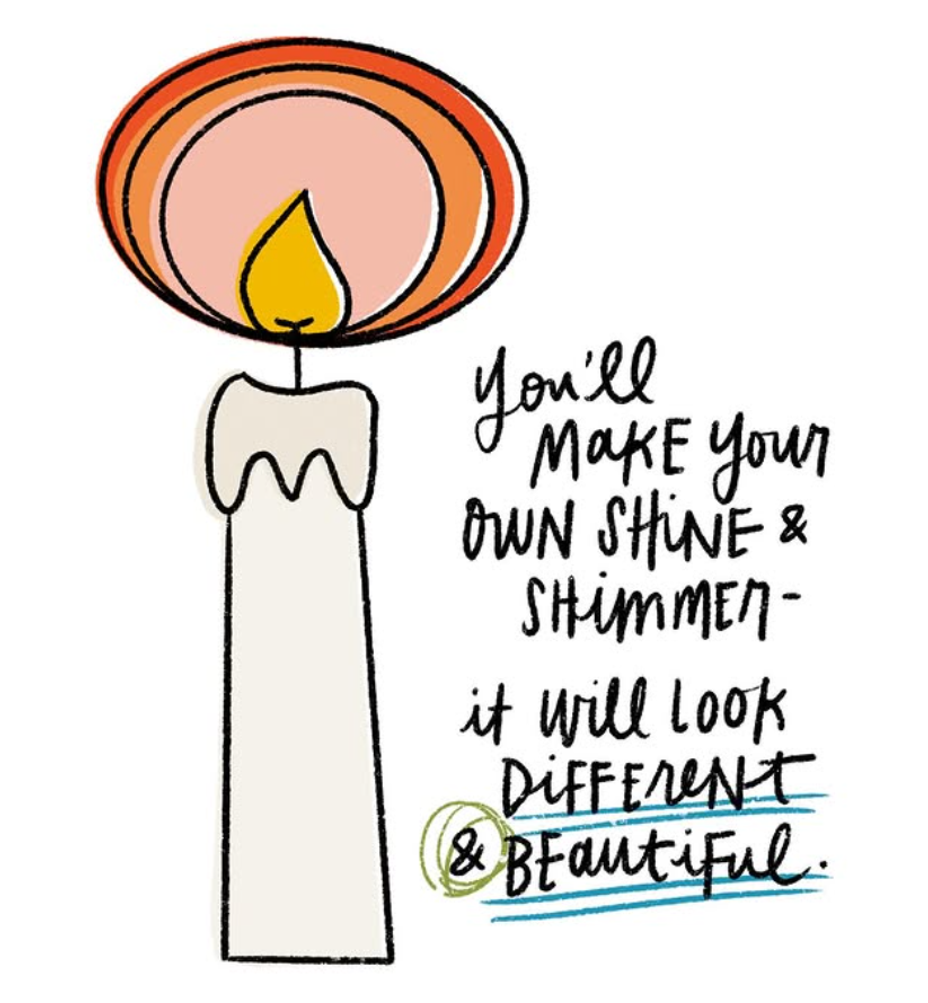 you'll
MaKE your
OWN SHiNE &
SHimmER-
it will look
DiFFERENt
& BEautiFul.